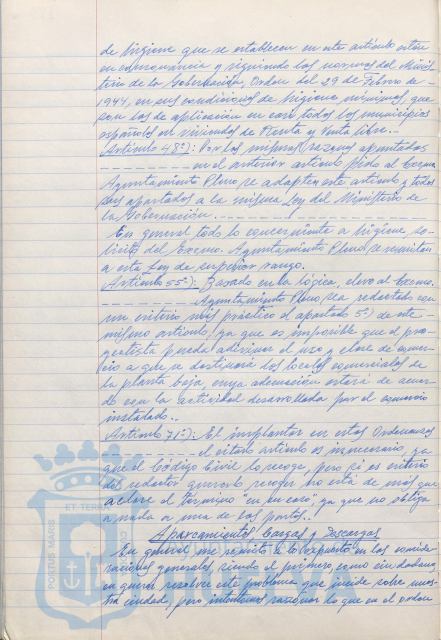 de higiene que se establecen en este artículo estén
en consonancia y siguiendo las normas del Minis-
terio de la Gobernación, Orden del 29 de Febrero de
1944, en sus condiciones de higiene mínimas, que
son las de aplicación en casi todos los municipios
españoles en viviendas de Renta y Venta libre...
Artículo 48º): Por las mismas razones apuntadas
en el anterior artículo pido al Excmo.
Ayuntamiento Pleno se adapten este artículo y todos
sus apartados a la misma Ley del Ministerio de
la Gobernación.
En general todo lo concerniente a higiene so-
licito del Excmo. Ayuntamiento Pleno se remitan
a esta Ley de superior rango.
Artículo 55º): Basado en la lógica, elevo al Excmo.
Ayuntamiento Pleno, sea redactado con
un criterio más práctico el apartado 5º) de este
mismo artículo, ya que es imposible que el pro-
yectista pueda adivinar el uso y clase de comer-
cio a que se destinará los locales comerciales de
la planta baja, cuya adecuación estará de acuer-
do con la actividad desarrollada por el comercio
instalado..
Artículo 71º): El implantar en estas Ordenanzas
el citado artículo es innecesario, ya
que el Código Civil lo recoge, pero si es criterio
del redactor quererlo recoger no está de más que
aclare el término "en su caso" ya que no obliga
a nada a una de las partes..
Aparcamientos Cargas y Descargas
En general me remito a lo expuesto en las conside-
raciones generales, siendo el primero, como sin duda,
en querer resolver este problema que incide sobre nues-
tra ciudad, pero intentemos razonar lo que en el orden
PORTUS MARIS
ET TERRAE